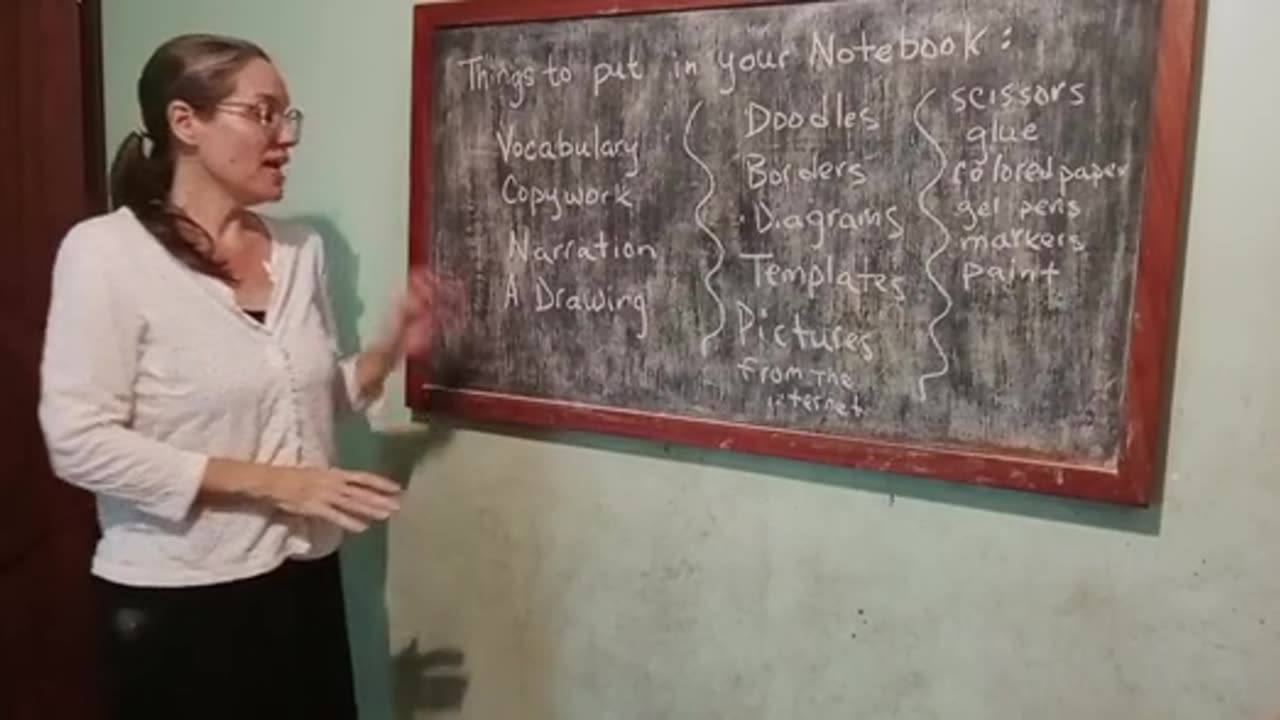 Things to put in your Notebook:
Vocabulary
Copywork
Narration
A Drawing
Doodles
Borders
Diagrams
Templates
Pictures
from the
internet
scissors
glue
colored paper
gel pens
markers
paint